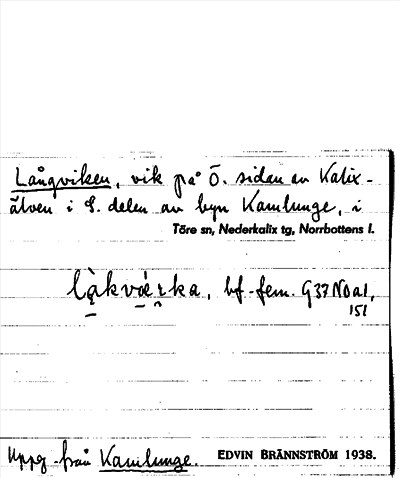 Långviken, vik på Ö. sidan av Kalix-
älven i S. delen av byn Kamlunge, i
Töre sn, Nederkalix tg, Norrbottens l.
bf. fem. G 37 No a 1,
151
Uppg. från Kamlunge. EDVIN BRÄNNSTRÖM 1938.